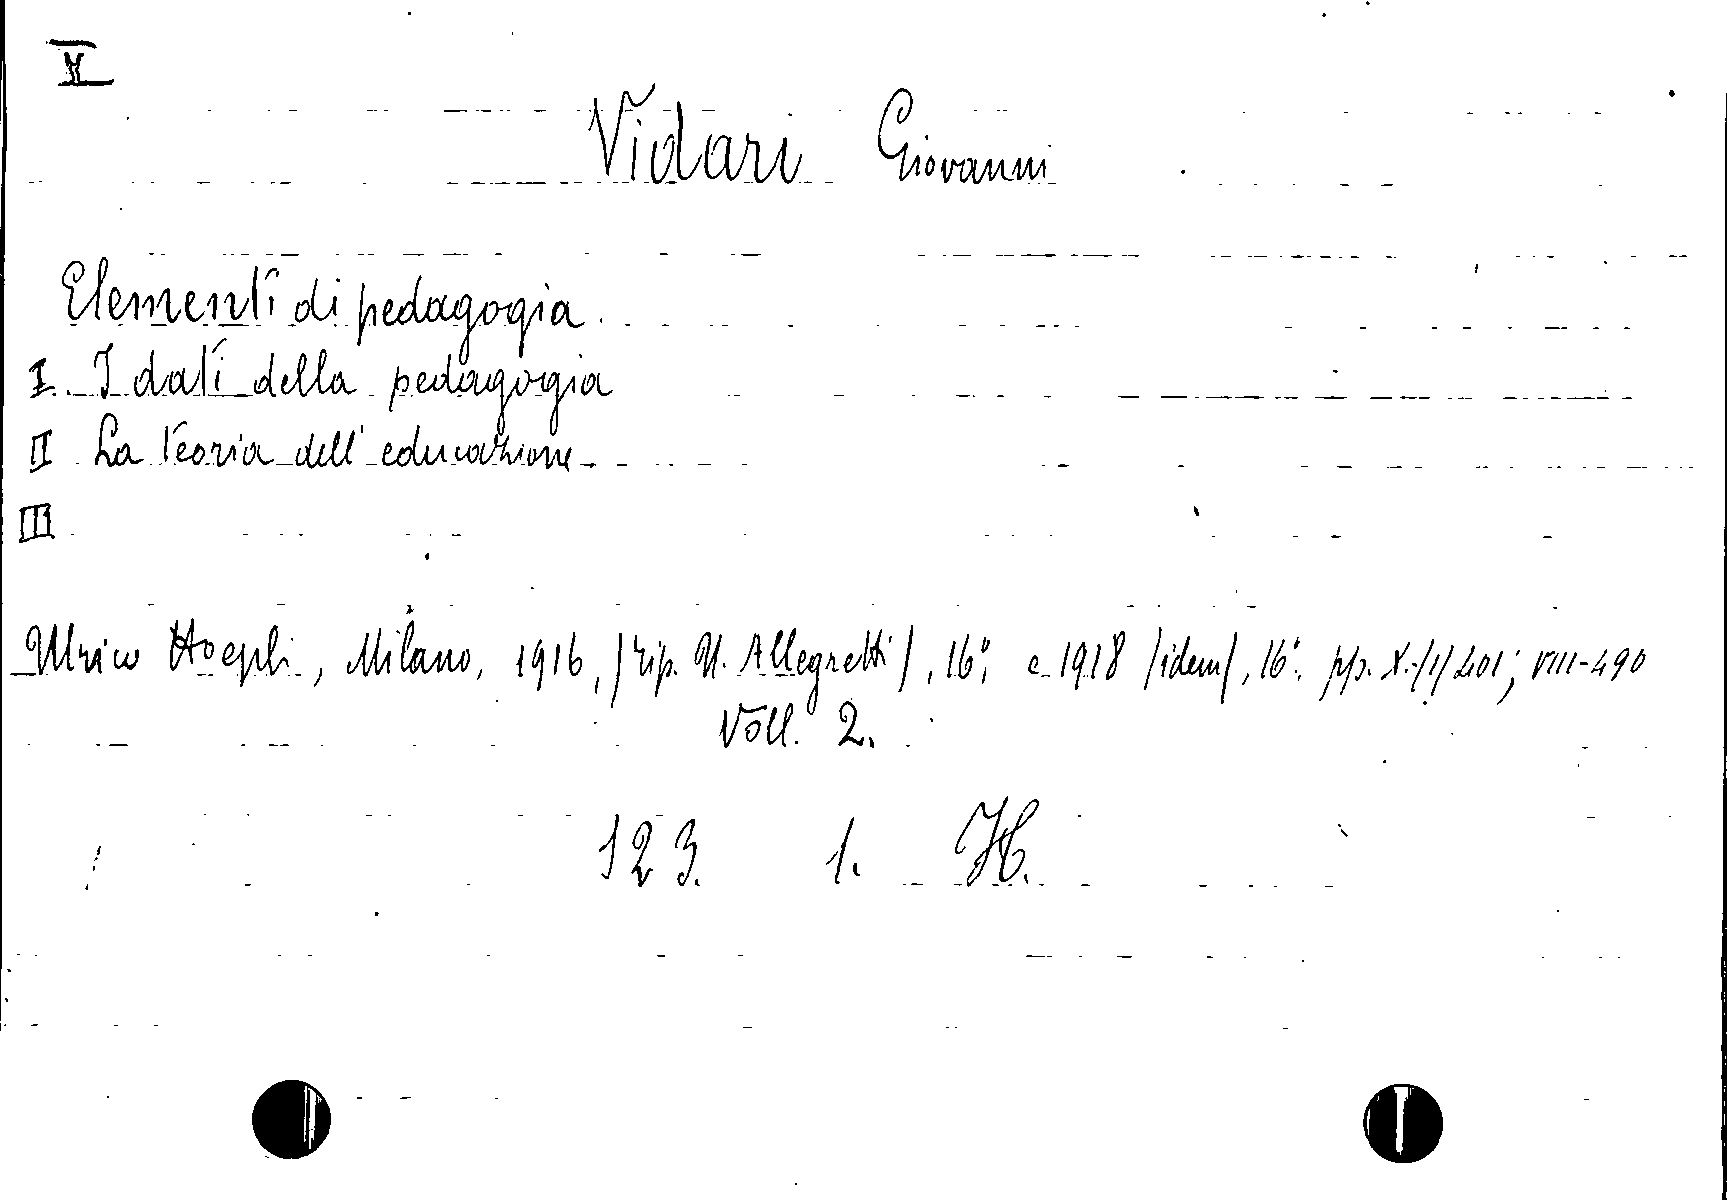 V
Vidari Giovanni
Elementi di pedagogia.
I. I dati della pedagogia
II La teoria dell'educazione.
III
Ulrico Hoepli, Milano, 1916, /tip. U. Allegretti/, 16°; e 1918 /idem/, 16°. pp. X-/1/ 401; VIII-490
Voll. 2.
123. 1. H.